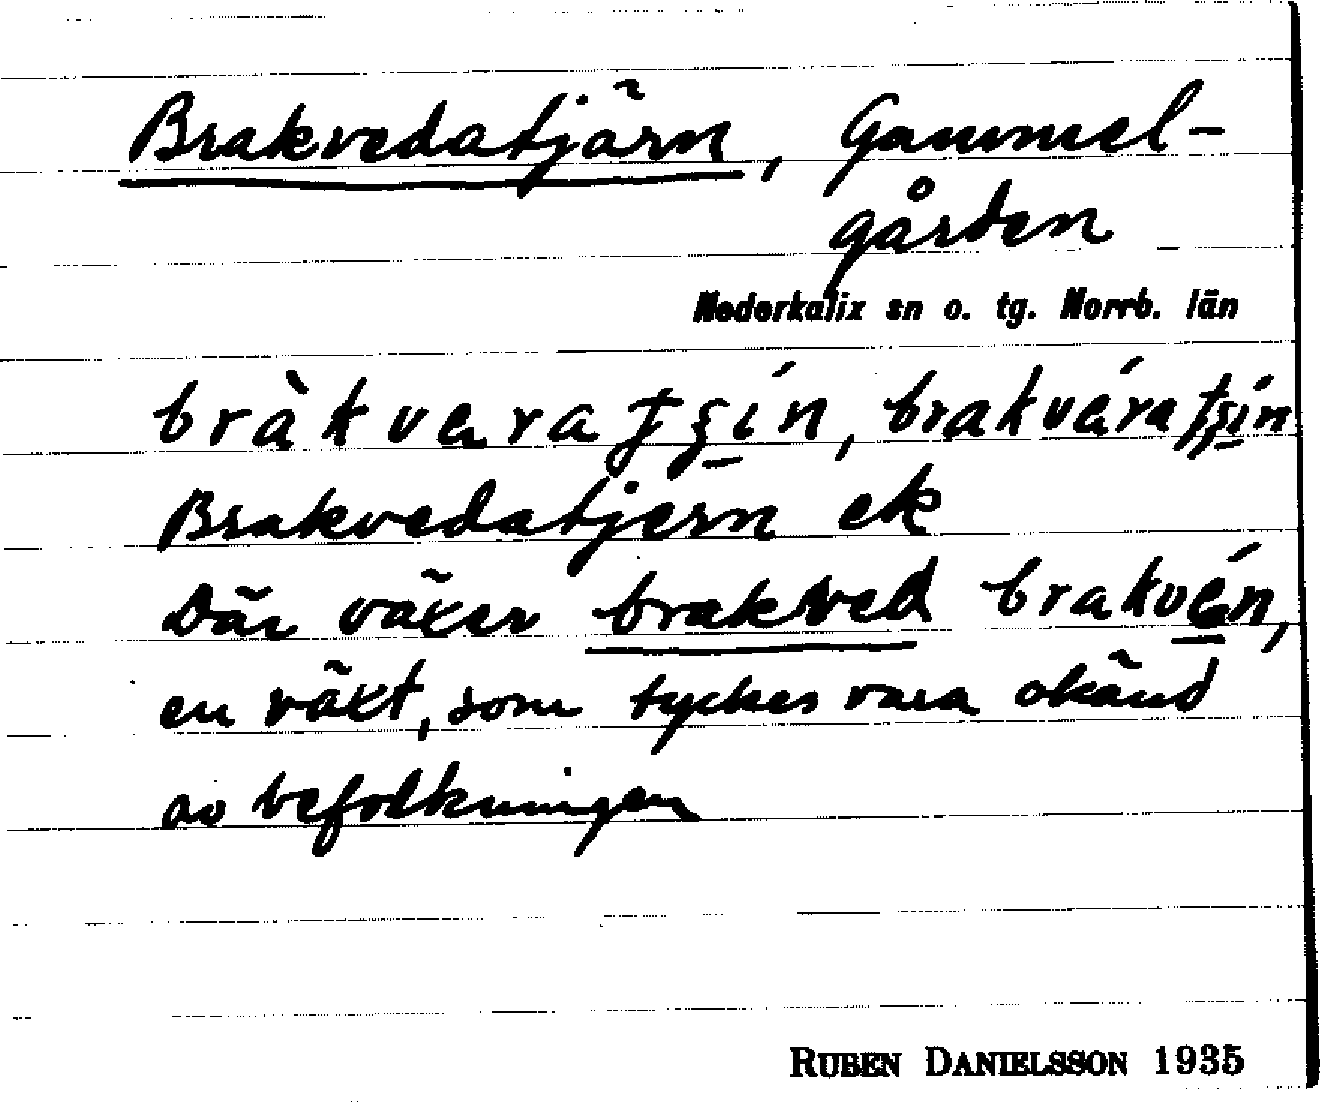 Brakvedatjärn, Gammel-
gården
Nederkalix sn o. tg. Norrb. län
Brakvedatjern ek
Där växer brakved brakvén,
en växt, som tyckes vara okänd
av befolkningen
RUBEN DANIELSSON 1935